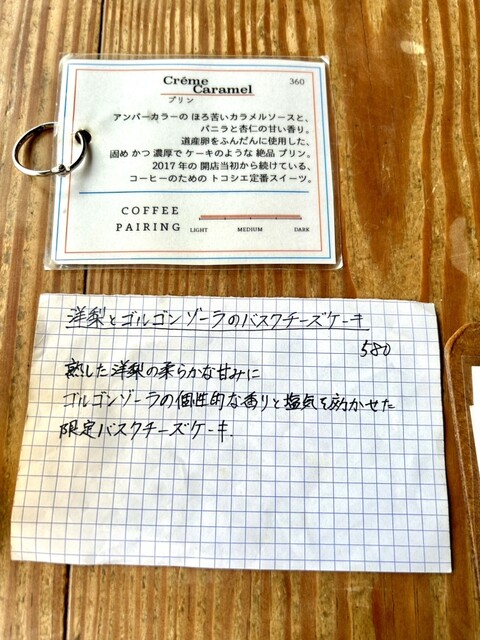 Crême
Caramel
360
プリン
アンバーカラーの ほろ苦いカラメルソースと、
バニラと杏仁の甘い香り。
道産卵をふんだんに使用した、
固め かつ 濃厚で ケーキのような 絶品 プリン。
2017 年の 開店当初から続けている、
コーヒーのための トコシエ定番スイーツ。
COFFEE
PAIRING
LIGHT MEDIUM DARK
洋梨とゴルゴンゾーラのバスクチーズケーキ
580
熟した洋梨の柔らかな甘みに
ゴルゴンゾーラの個性的な香りと塩気を効かせた
限定バスクチーズケーキ.